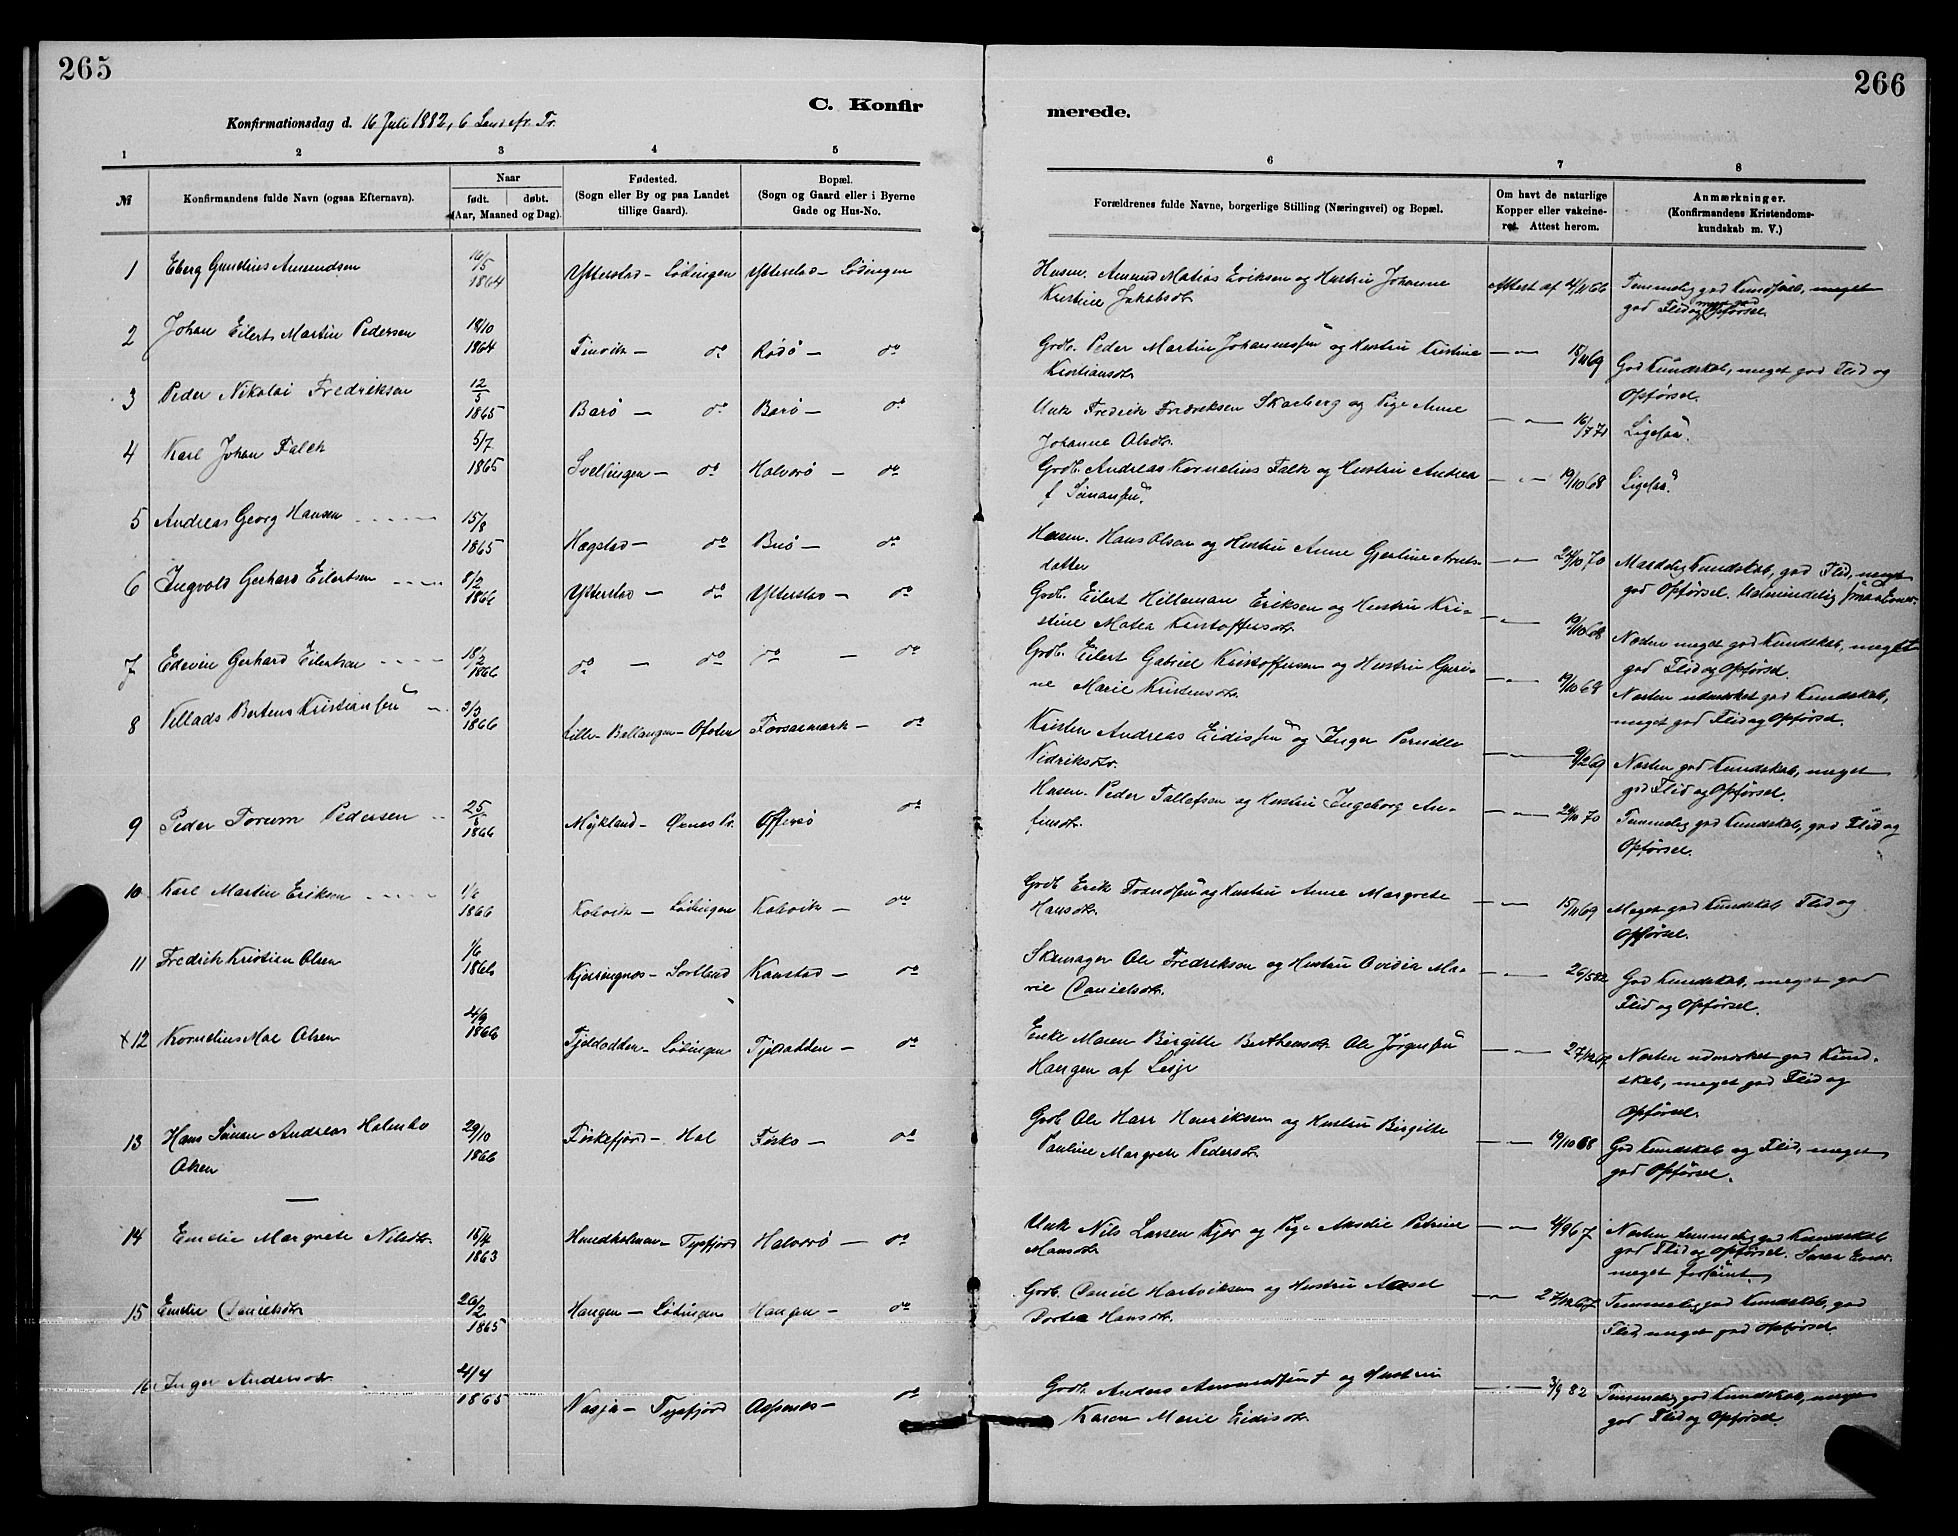 265
266
C. Konfir
merede.
Konfirmationsdag d. 16 Juli 1882, 6 Tr.
1 2 3 4 5 6 7 8
№
Konfirmandens fulde Navn (ogsaa Efternavn).
Naar
født. døbt.
(Aar, Maaned og Dag).
Fødested.
(Sogn eller By og paa Landet
tillige Gaard).
Bopæl.
(Sogn og Gaard eller i Byerne
Gade og Hus-No.
Forældrenes fulde Navne, borgerlige Stilling (Næringsvei) og Bopæl.
Om havt de naturlige
Kopper eller vakcine-
ret. Attest herom.
Anmærkninger.
(Konfirmandens Kristendoms-
kundskab m. V.)
1 Eberg Gunelius Amundsen 16/5 1864 Ytterstad - Lødingen Ytterstad - Lødingen
Husm. Amund Matias Eriksen og Hustru Johanne
Kristine Jakobsdtr. Attest af 4/11 66 Temmelig god Kundskab, meget
god Flid og Opførsel.
2 Johan Eilert Martin Pedersen 18/10 1864 Finvik - do Rødø - do
Grdb. Peder Martin Johannessen og Hustru Kristine
Kristiansdtr. — " — 15/11 69 God Kundskab, meget god Flid og
Opførsel.
3 Peder Nikolai Fredriksen 12/5 1865 Barø - do Barø - do
Unk. Fredrik Fredriksen Skarberg og Pige Anne
Johanne Olsdtr. — " — 16/7 71 Ligesaa.
4 Karl Johan Falch 5/7 1865 Svellingen - do Halvorø - do
Grdb. Andreas Kornelius Falk og Hustru Andrea
f. Simonsen. — " — 19/10 68 Ligesaa.
5 Andreas Georg Hansen 15/8 1865 Hægstad - do Buø - do
Husm. Hans Olsen og Hustru Anne Gjertine
datter — " — 24/10 70 Maadelig Kundskab, god Flid, meget
god Opførsel. Ualmindelig smaa Evner.
6 Ingvald Gerhard Eilertsen 8/2 1866 Ytterstad - do Ytterstad - do
Grdb. Eilert Hilleman Eriksen og Hustru Kri-
stine Matea Kristoffersdtr. — " — 19/10 68 Næsten meget god Kundskab, meget
god Flid og Opførsel.
7 Edevin Gerhard Eilertsen 18/2 1866 do - do do - do
Grdb. Eilert Gabriel Kristoffersen og Hustru Guri-
ne Marie Kristensdtr. — " — 19/10 69 Næsten udmærket god Kundskab,
meget god Flid og Opførsel.
8 Villads Bertens Kristiansen 2/3 1866 Lille-Ballangen - Ofoten Forsaamark - do
Kristen Andreas Eidissen og Inger Pernille
Vidriksdtr. — " — 9/2 69 Næsten god Kundskab, meget
god Flid og Opførsel.
9 Peder Torum Pedersen 25/5 1866 Mykland - Øxnes Pr. Offersø do
Husm. Peder Tallefsen og Hustru Ingeborg An-
finsdtr. — " — 24/11 70 Temmelig god Kundskab, god Flid og
Opførsel.
10 Karl Martin Eriksen 1866 Kobvik - Lødingen Kobvik - do
Grdb. Erik Trondsen og Hustru Anne Margrete
Hansdtr. — " — 15/11 69 Meget god Kundskab Flid og
Opførsel.
11 Fredrik Kristian Olsen 1/6 1866 Kjerringnes - Sortland Kanstad - do
Skomager Ole Fredriksen og Hustru Ovidia Ma-
rie Danielsdtr. — " — 26/5 82 God Kundskab, meget god
Flid og Opførsel.
+12 Kornelius Moe Olsen 4/9 1866 Tjeldodden - Lødingen Tjeldodden - do
Enke Maren Birgitte Berthensdtr. Ole Jørgensen
Haugen af Lesje — " — 27/12 67 Næsten udmærket god Kund-
skab, meget god Flid og
Opførsel.
13 Hans Simon Andreas Holmbo
Olsen 29/10 1866 Fiskefjord - Hol Fisko - do
Grdb. Ole Harr Henriksen og Hustru Birgitte
Pauline Margrete Pedersdtr. — " — 19/10 68 God Kundskab og Flid, meget
god Opførsel.
14 Emelie Margrete Nilsdtr. 15/4 1863 Hundholmen - Tysfjord Halvorø - do
Unk. Nils Larsen Kjær og Pige Petrine
Monsdtr. — " — 4/9 67 Næsten temmelig god Kundskab
god Flid og Opførsel. Smaa Evner
meget forsømt.
15 Emelie Danielsdtr. 26/2 1865 Haugen - Lødingen Haugen - do
Grdb. Daniel Hartviksen og Hustru
Dortea Hansdtr. — " — 27/12 67 Temmelig god Kundskab, god
Flid meget god Opførsel.
16 Inger Andersdtr. 4/4 1865 Tysfjord - do
Grdb. Anders Amundsen † og Hustru
Karen Marie Eidisdtr. — " — 3/9 82 Temmelig god Kundskab, meget
god Flid og Opførsel.